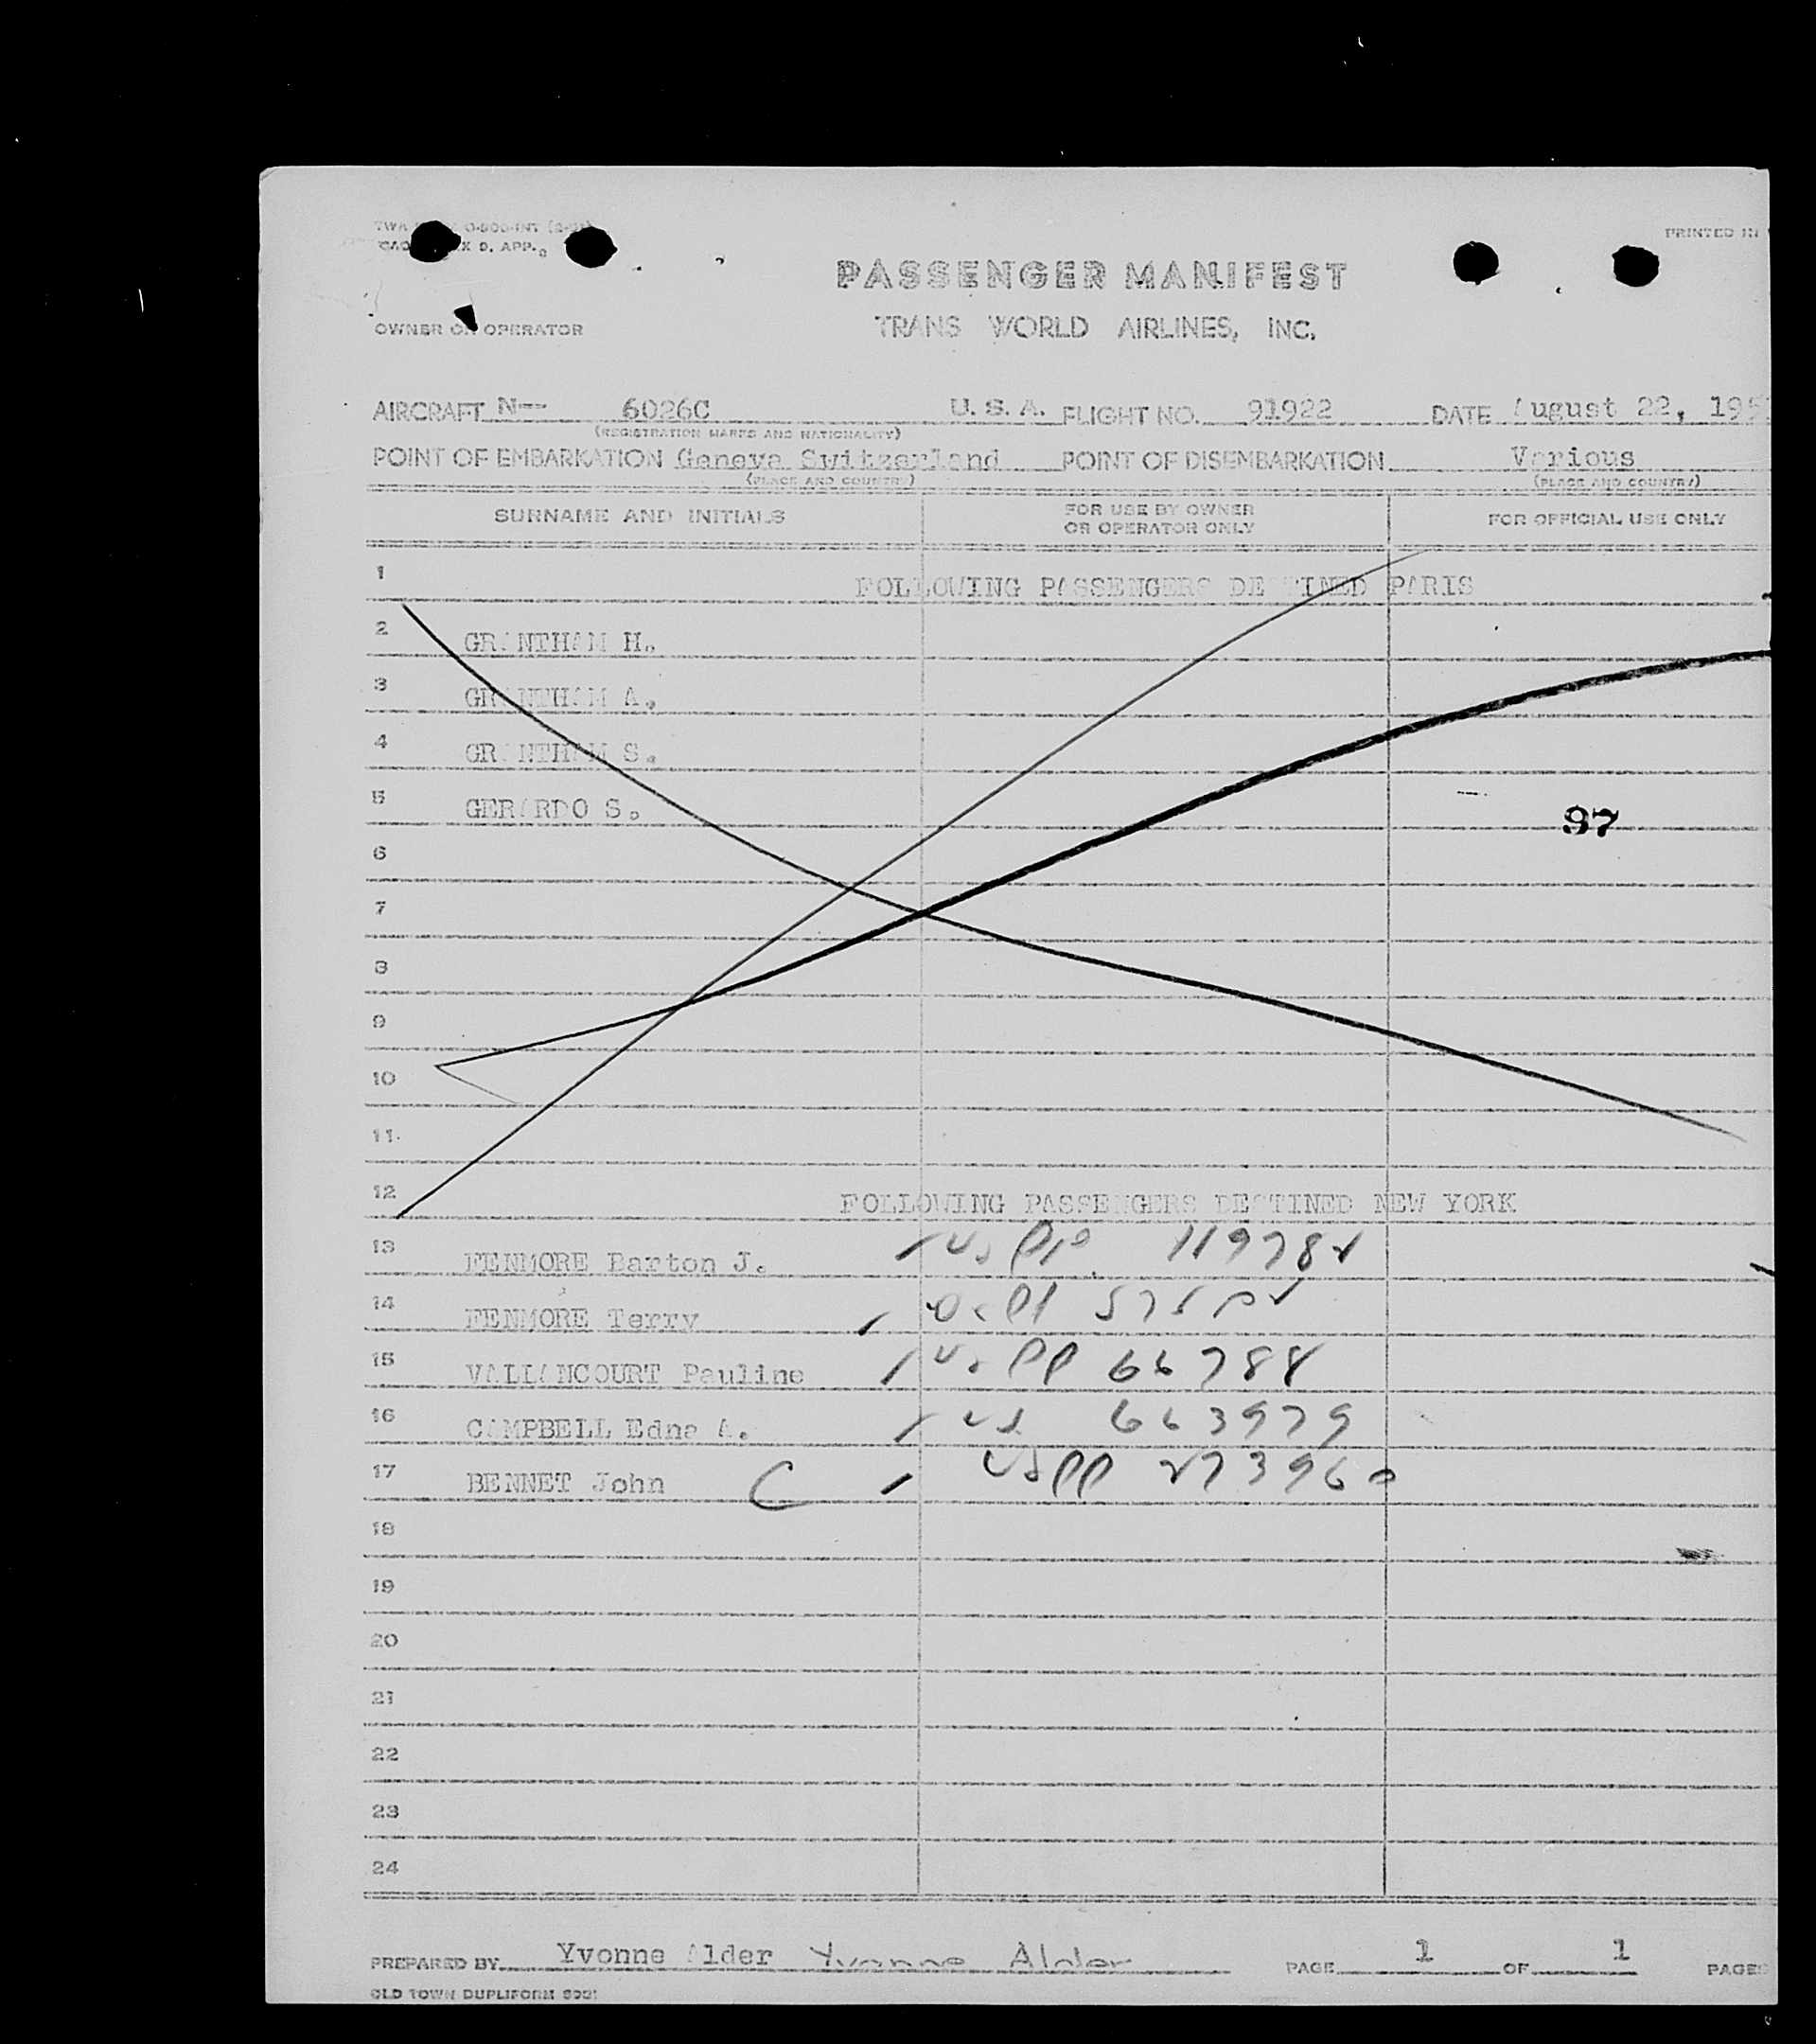 X D. APP.
PRINTED IN
PASSENGER MANIFEST
OWNER OR OPERATOR
TRANS WORLD AIRLINES, INC.
AIRCRAFT N-- 6026C U. S. A. FLIGHT NO. 91922 DATE August 22, 195
(REGISTRATION MARKS AND NATIONALITY)
POINT OF EMBARKATION Geneva Switzerland POINT OF DISEMBARKATION Various
(PLACE AND COUNTRY) (PLACE AND COUNTRY)
SURNAME AND INITIALS FOR USE BY OWNER OR OPERATOR ONLY FOR OFFICIAL USE ONLY
1 FOLLOWING PASSENGERS DESTINED PARIS
2 GRANTHAM H.
3 GRANTHAM A.
4 GRANTHAM S.
5 GERARDO S.
97
6
7
8
9
10
11
12 FOLLOWING PASSENGERS DESTINED NEW YORK
13 FENMORE Barton J. us pp 119782
14 FENMORE Terry
15 VALLANCOURT Pauline us pp 66788
16 CAMPBELL Edna A. us 663979
17 BENNET John C us pp 273960
18
19
20
21
22
23
24
PREPARED BY Yvonne Alder Yvonne Alder PAGE 1 OF 1 PAGES
OLD TOWN DUPLIFORM